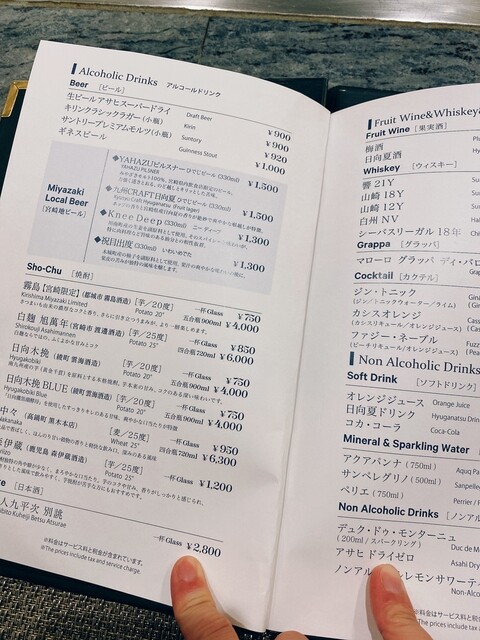 Alcoholic Drinks アルコールドリンク
Beer [ビール]
生ビールアサヒスーパードライ Draft Beer ¥900
キリンクラシックラガー(小瓶) Kirin ¥900
サントリープレミアムモルツ(小瓶) Suntory ¥920
ギネスビール Guinness Stout ¥1,000
Miyazaki
Local Beer
[宮崎地ビール]
◆YAHAZUピルスナー ひでじビール (330ml) ¥1,500
YAHAZU PILSNER
◆九州CRAFT日向夏 ひでじビール (330ml) ¥1,500
Kyusyu Craft Hyuganatsu (Fruit lager)
◆Knee Deep (330ml) ニーディープ ¥1,300
◆祝日出度 (330ml) いわいめでた ¥1,300
Sho-Chu [焼酎]
霧島【宮崎限定】(都城市 霧島酒造) [芋/20度] 一杯 Glass ¥750
Kirishima Miyazaki Limited Potato 20° 五合瓶 900ml ¥4,000
白麹 旭萬年 (宮崎市 渡邊酒造) [芋/25度] 一杯 Glass ¥850
Shirokouji Asahimannen Potato 25° 四合瓶 720ml ¥6,000
日向木挽 (綾町 雲海酒造) [芋/20度] 一杯 Glass ¥750
Hyugakobiki Potato 20° 五合瓶 900ml ¥4,000
日向木挽 BLUE (綾町 雲海酒造) [芋/20度] 一杯 Glass ¥750
Hyugakobiki Blue Potato 20° 五合瓶 900ml ¥4,000
中々 (高鍋町 黒木本店) [麦/25度] 一杯 Glass ¥950
Nakanaka Wheat 25° 四合瓶 720ml ¥6,300
伊蔵 (鹿児島 森伊蔵酒造) [芋/25度] 一杯 Glass ¥1,200
Potato 25°
[日本酒]
人九平次 別誂 一杯 Glass ¥2,800
bito Kuheiji Betsu Atsurae
※料金はサービス料と税金が含まれています。
※The prices include tax and service charge.
Fruit Wine&Whiskey&
Fruit Wine [果実酒]
梅酒
日向夏酒
Whiskey [ウィスキー]
響 21Y
山崎 18Y
山崎 12Y
白州 NV
シーバスリーガル 18年
Grappa [グラッパ]
マローロ グラッパ ディ・バロ
Cocktail [カクテル]
ジン・トニック Gin
(ジン/トニックウォーター/ライム) (Gi
カシスオレンジ Cass
(カシスリキュール/オレンジジュース) (Ca
ファジー・ネーブル Fuzz
(ピーチリキュール/オレンジジュース) (Pea
Non Alcoholic Drinks
Soft Drink [ソフトドリンク]
オレンジジュース Orange Juice
日向夏ドリンク Hyuganatsu Drin
コカ・コーラ Coca-Cola
Mineral & Sparkling Water
アクアパンナ (750ml) Aqua Pa
サンペレグリノ (500ml) Sanpelleg
ペリエ (750ml) Perrier
Non Alcoholic Drinks [ノンアル
デュク・ドゥ・モンターニュ Duc de M
(200ml / スパークリング)
アサヒ ドライゼロ Asahi Dry
レモンサワーテ Non-Alco
※料金はサービス料と
※The prices include tax